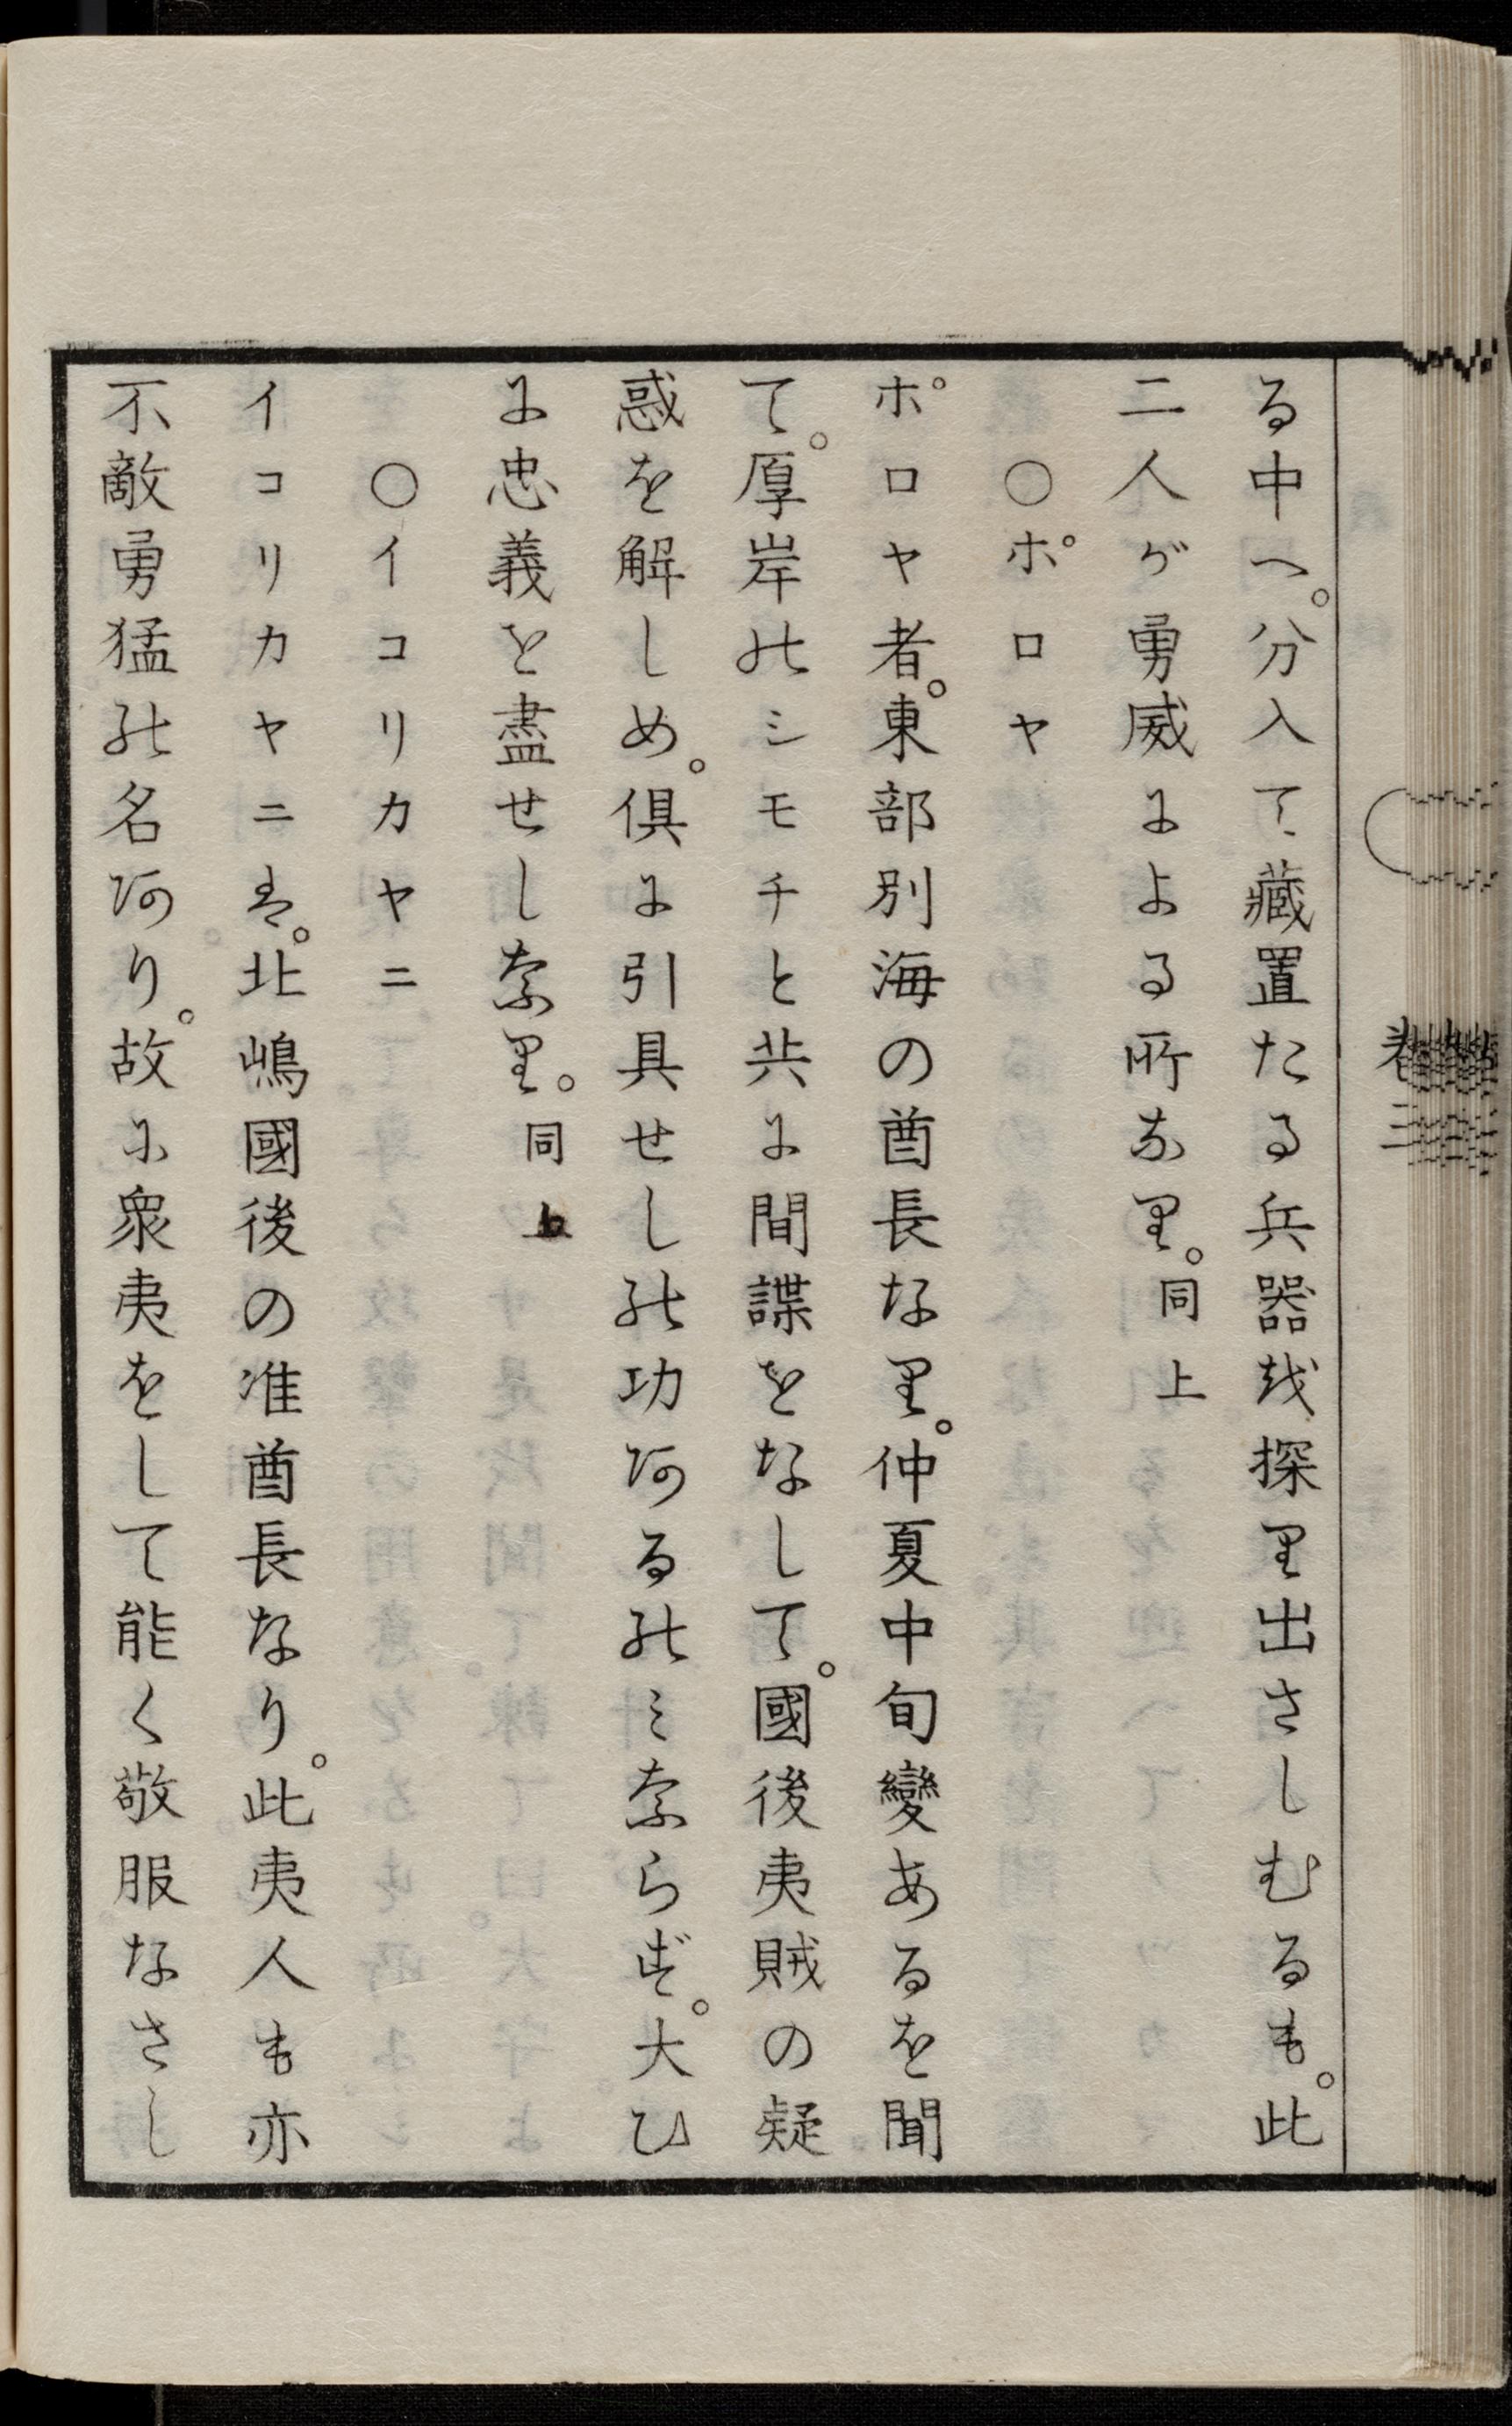 る中へ。分入て藏置たる兵器越探里出さしむるも。此
二人が勇威による所な里。同上
○ポロヤ
ポロヤ者。東部別海の酋長な里。仲夏中旬變あるを聞
て。厚岸能シモチと共に間諜をなして。國後夷賊の疑
惑を解しめ。倶に引具せし能功阿る能ミ奈らず。大ひ
に忠義を盡せし奈里。同上
○イコリカヤニ
イコリカヤニは。北嶋國後の准酋長なり。此夷人も亦
不敵勇猛能名阿り。故に衆夷をして能く敬服なさし
卷三